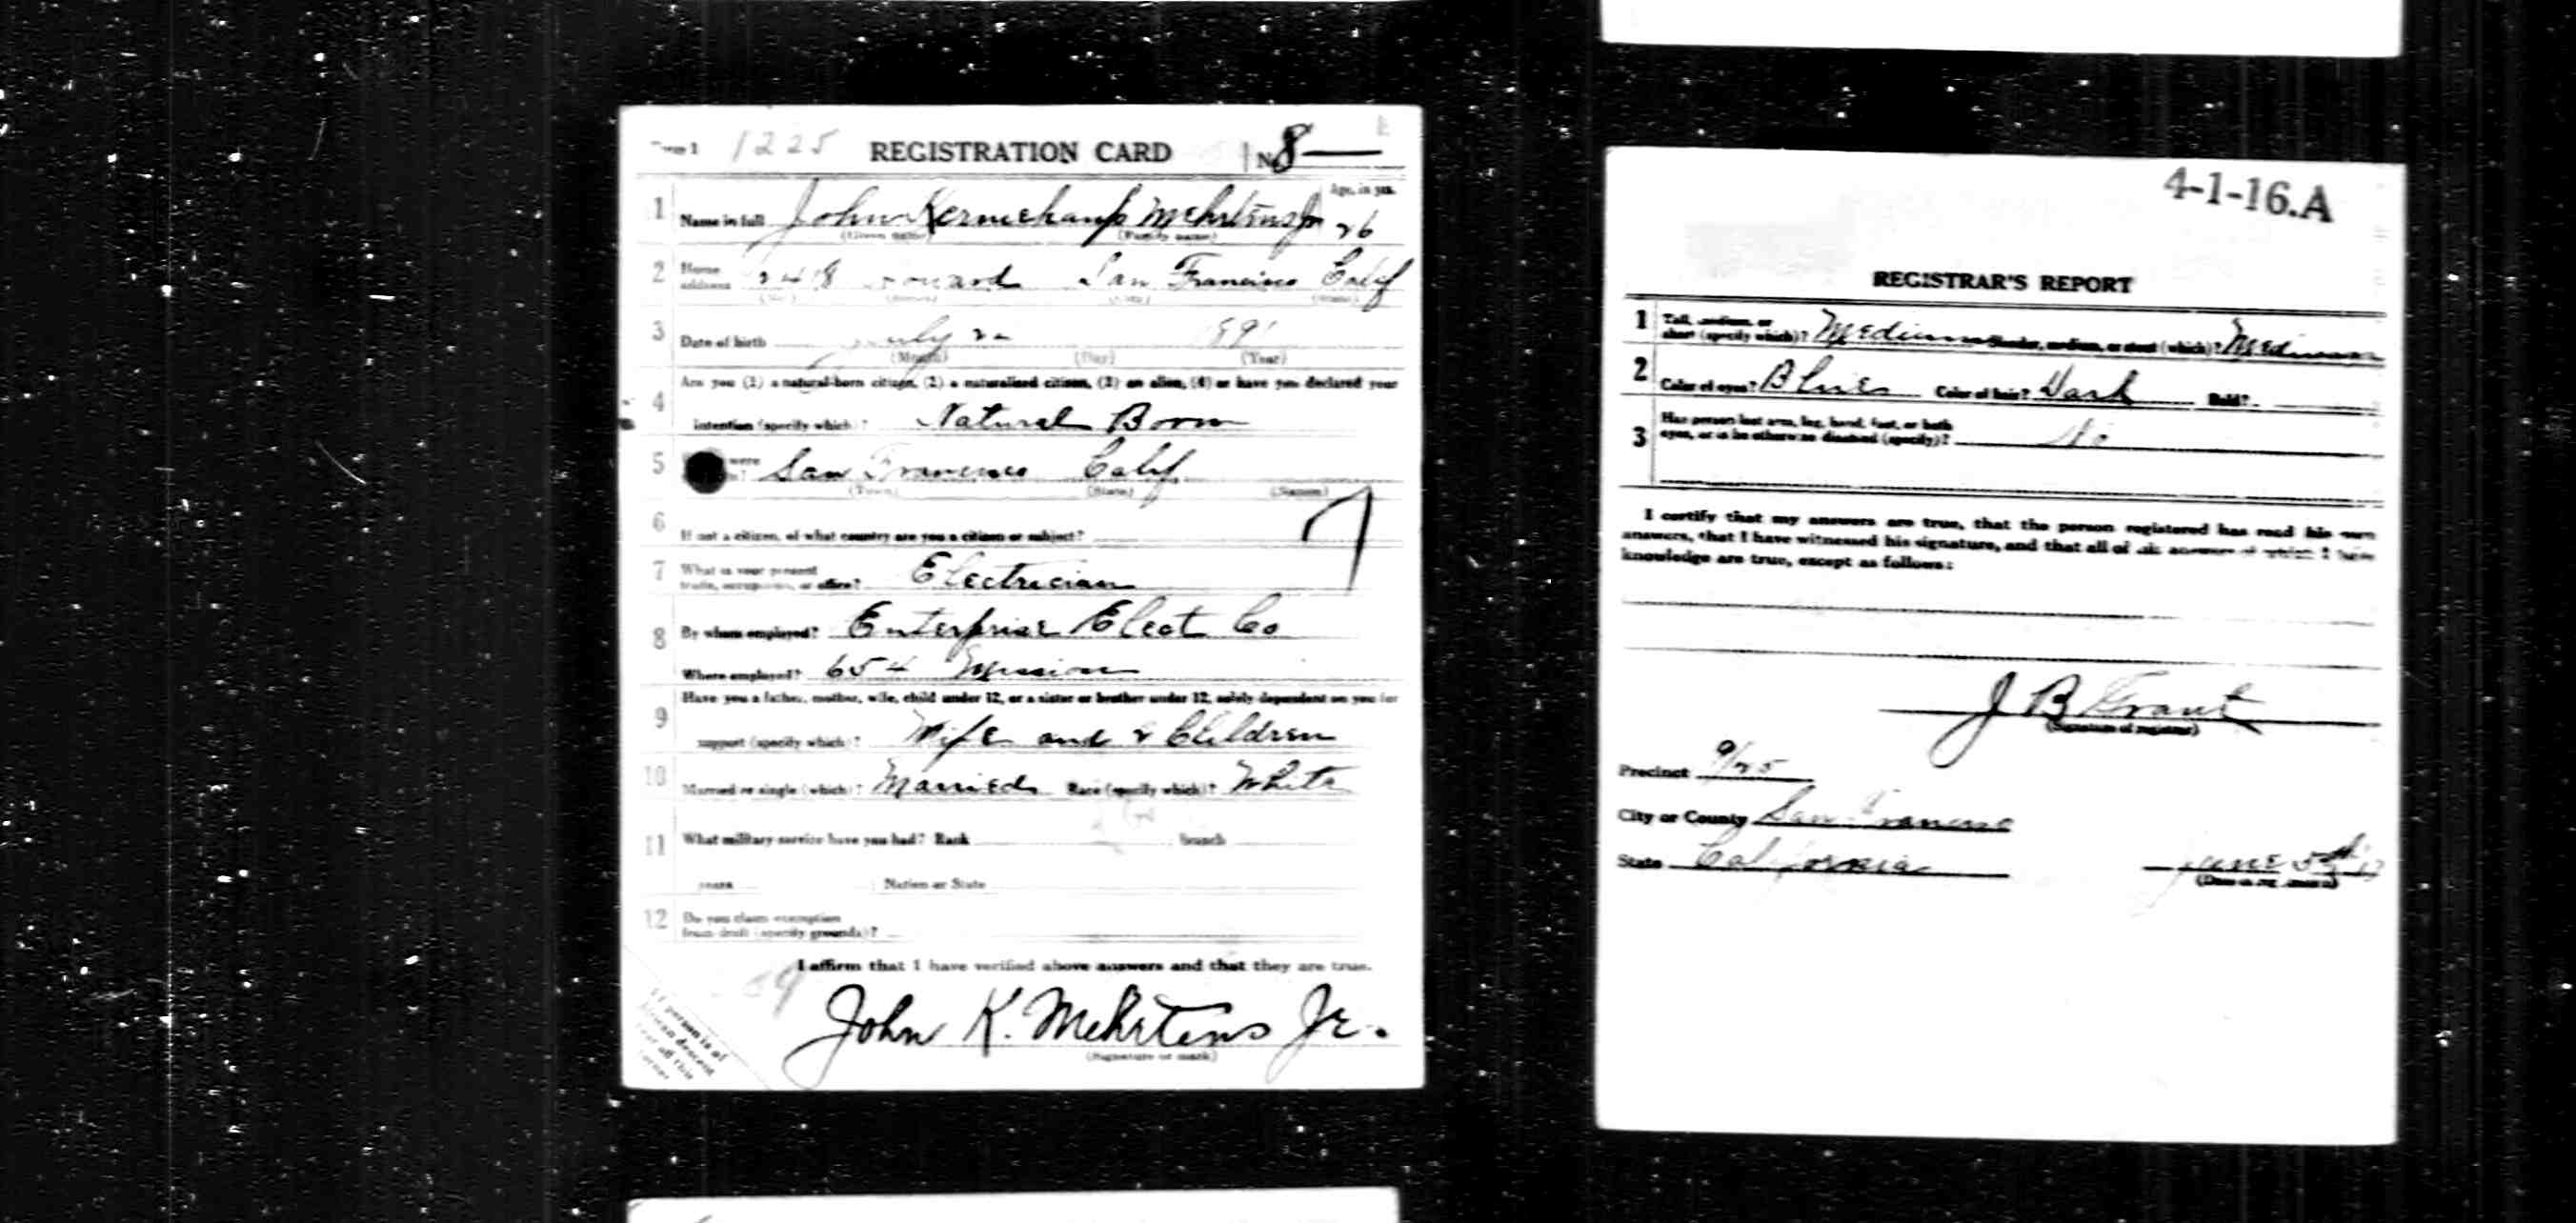 1225 REGISTRATION CARD No 8
Age, in yrs.
1 Name in full John Mehrtens Jr 26
(Given name) (Family name)
2 Home address San Francisco Calif
(No.) (Street) (City) (State)
3 Date of birth July
(Month) (Day) (Year)
4 Are you (1) a natural-born citizen, (2) a naturalized citizen, (3) an alien, (4) or have you declared your
intention (specify which)? Natural Born
5 were San Francisco Calif
(Town) (State) (Nation)
6 If not a citizen, of what country are you a citizen or subject?
7 What is your present
trade, occupation, or office? Electrician
8 By whom employed? Enterprise Elect Co
Where employed? 654 Mission
9 Have you a father, mother, wife, child under 12, or a sister or brother under 12, solely dependent on you for
support (specify which)? Wife and 2 Children
10 Married or single (which)? Married Race (specify which)? White
11 What military service have you had? Rank branch
years Nation or State
12 Do you claim exemption
from draft (specify grounds)?
I affirm that I have verified above answers and that they are true.
John K. Mehrtens Jr.
(Signature or mark)
If person is of
African descent
tear off this
corner
4-1-16.A
REGISTRAR'S REPORT
1 Tall, medium, or
short (specify which)? Medium Slender, medium, or stout (which)? Medium
2 Color of eyes? Blue Color of hair? Dark Bald?
3 Has person lost arm, leg, hand, foot, or both
eyes, or is he otherwise disabled (specify)? No
I certify that my answers are true, that the person registered has read his own
answers, that I have witnessed his signature, and that all of his answers of which I have
knowledge are true, except as follows:
J B Grant
(Signature of registrar)
Precinct 9/25
City or County San Francisco
State California June 5th 17
(Date of registration)